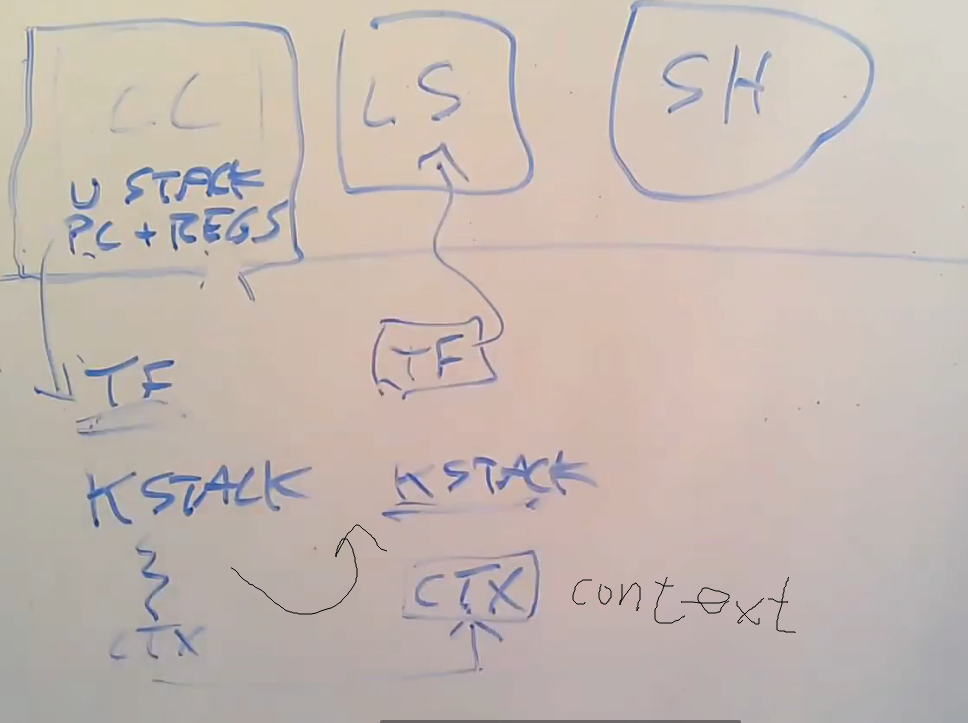 CC
U STACK
PC + REGS
LS
SH
TF
TF
KSTACK
KSTACK
CTX
CTX
context